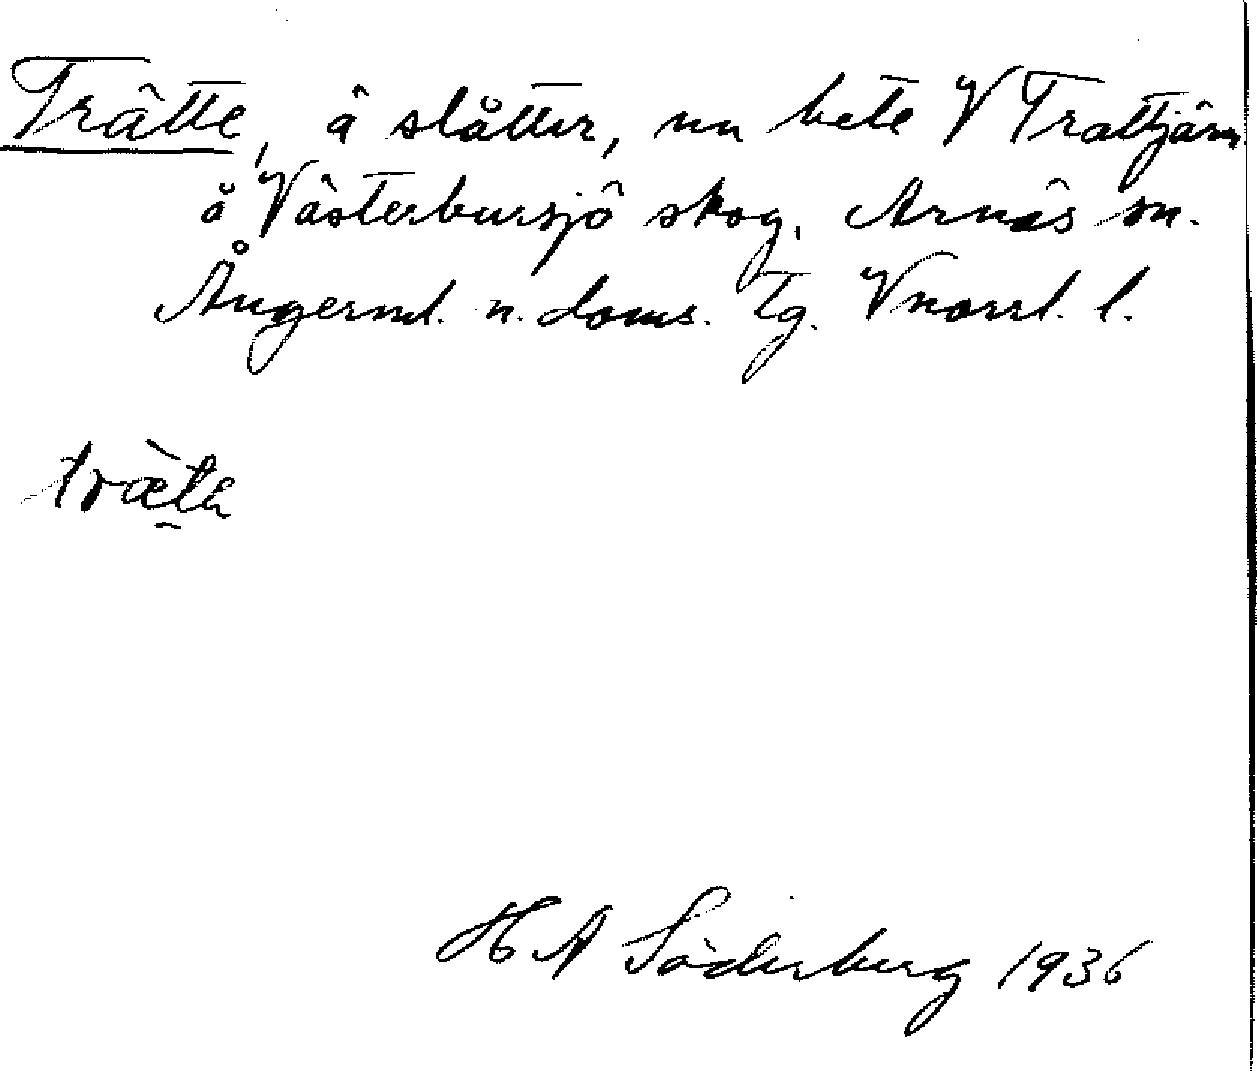 Trätte, ä slåtter, nu bete V Trattjärn
å Västerbursjö skog, Arnäs sn.
Ångerml. n. doms. Tg. Vnorrl. l.
H A Söderberg 1936